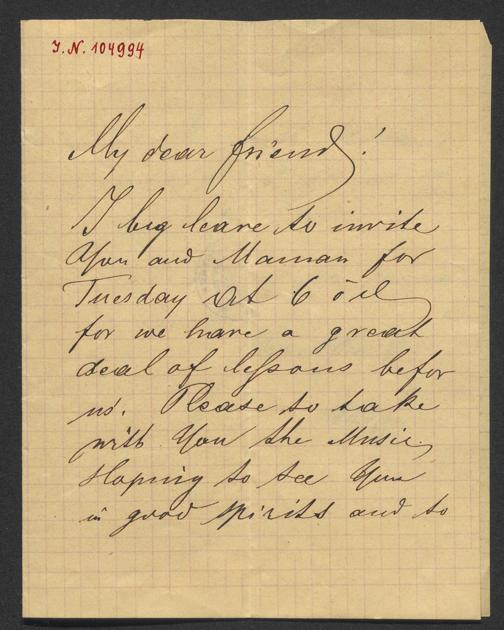 I.N. 104994
My dear friend!
I beg leave to invite
You and Maman for
Tuesday at 6 ö'cl
for we have a great
deal of lessons befor
us. Please to take
with You the Music,
Hoping to see You
in good spirits and to